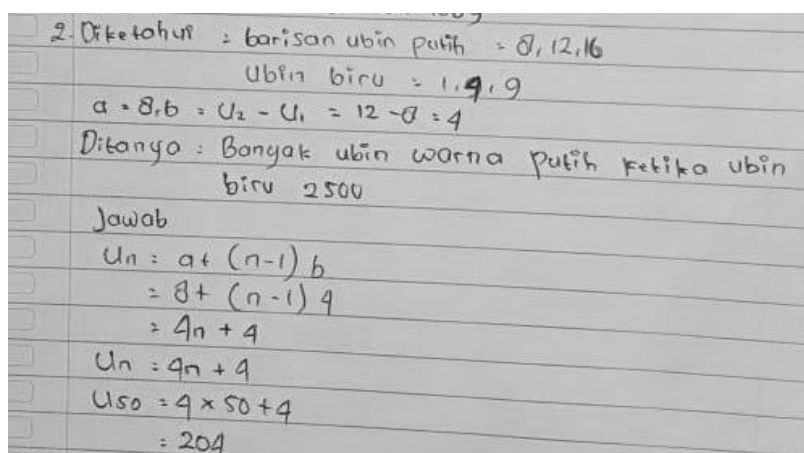 2. Diketahui : barisan ubin putih = 8, 12, 16
Ubin biru = 1, 4, 9
a = 8, b = U2 - U1 = 12 - 8 = 4
Ditanya : Banyak ubin warna putih ketika ubin
biru 2500
Jawab
Un = a + (n-1) b
= 8 + (n-1) 4
= 4n + 4
Un = 4n + 4
U50 = 4 × 50 + 4
= 204